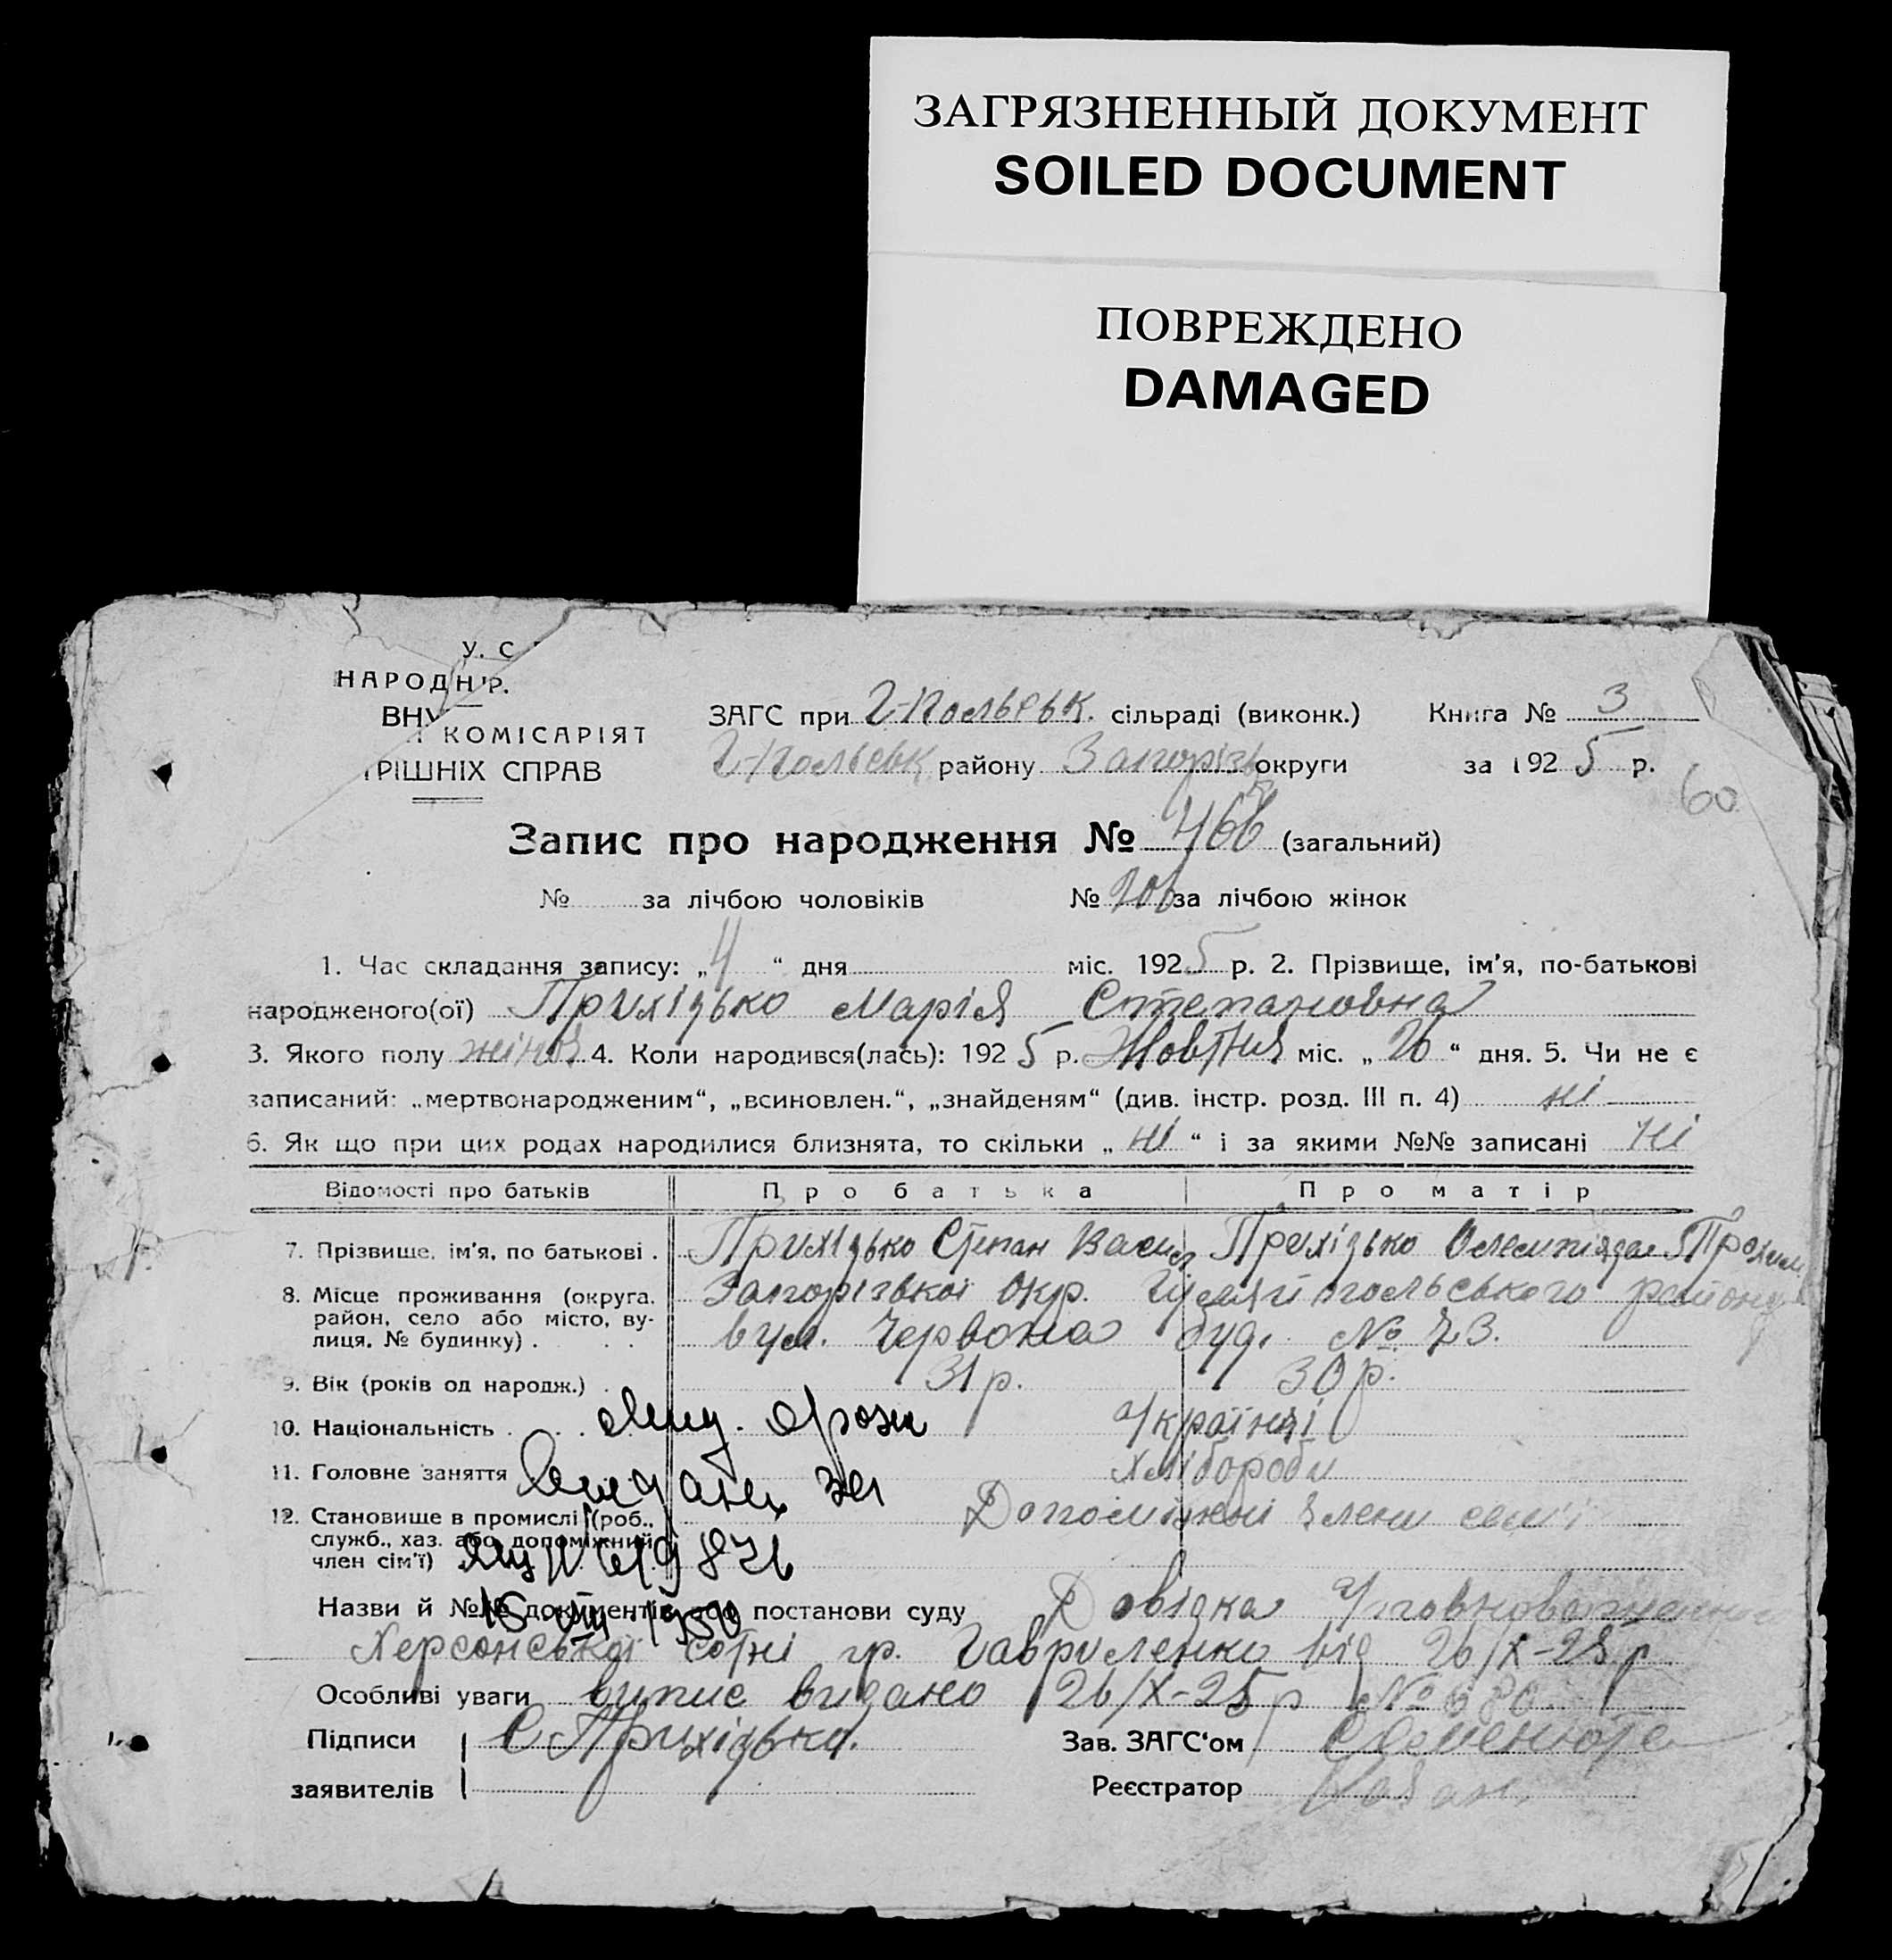 ЗАГРЯЗНЕННЫЙ ДОКУМЕНТ
SOILED DOCUMENT
ПОВРЕЖДЕНО
DAMAGED
У. С
НАРОДН Р.
ВНУ
КОМІСАРІЯТ
ТРІШНІХ СПРАВ
ЗАГС при Г-Польськ. сільраді (виконк.) Книга № 3
Г-Польськ району Запорізьк округи за 1925 р.
60
Запис про народження № 466 (загальний)
№ за лічбою чоловіків № 206 за лічбою жінок
1. Час складання запису: „4“ дня міс. 1925 р. 2. Прізвище, ім'я, по-батькові
народженого(ої) Прихідько Марія Степановна
3. Якого полу жіноч 4. Коли народився(лась): 1925 р. Жовтня міс. „26“ дня. 5. Чи не є
записаний: „мертвонародженим“, „всиновлен.“, „знайденям“ (див. інстр. розд. III п. 4) ні
6. Як що при цих родах народилися близнята, то скільки „ні“ і за якими №№ записані ні
Відомості про батьків Про батька Про матір
7. Прізвище, ім'я, по батькові . Прихідько Степан Васил Прихідько Прохим
8. Місце проживання (округа, район, село або місто, вулиця, № будинку) . Запорізької Окр. Гуляйпольського району
вул. Червона буд. № 73.
9. Вік (років од народж.) . 31 р. 30 р.
10. Національність . Українці
11. Головне заняття Хлібороби
12. Становище в промислі (роб., служб., хаз. або допоміжний член сім'ї) Допоміжні члени сем'ї
15-VIII-1950
Назви й №№ документів або постанови суду Довідка Уповноваженного
Херсонської сотні гр. Гавриленко від 26/X-25 р
Особливі уваги випис видано 26/X-25 р № 680
Підписи С Прихідько. Зав. ЗАГС'ом Семенюта
заявителів Реєстратор